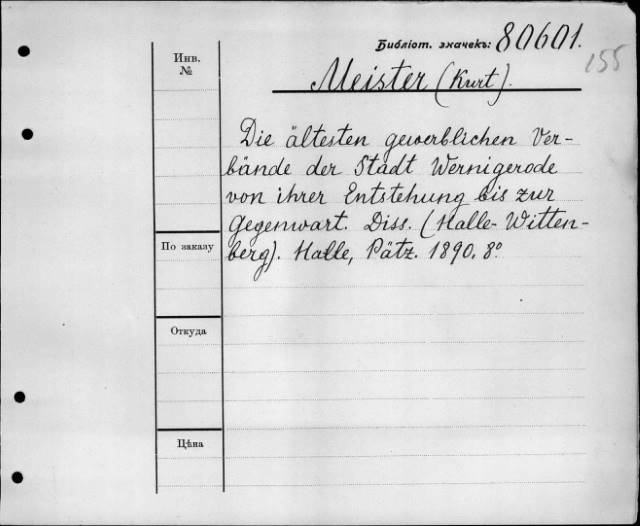 Библіот. значекъ: 80601.
155
Инв.
№
Meister (Kurt).
Die ältesten gewerblichen Ver-
bände der Stadt Wernigerode
von ihrer Entstehung bis zur
Gegenwart. Diss. (Halle-Witten-
berg). Halle, Pätz. 1890. 8º
По заказу
Откуда
Цѣна